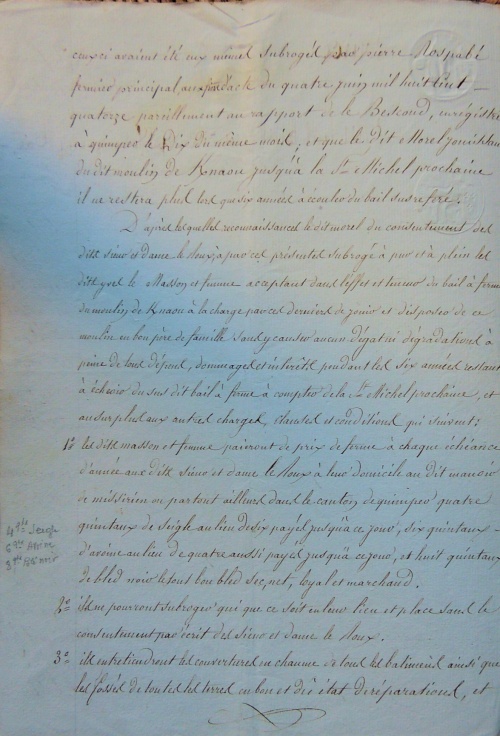 ceux ci avaient été eux mêmes subrogés par pierre Rospabé
fermier principal, aux fins d'acte du quatre juin mil huit cent
quatorze pareillement au rapport de le Bescond, enregistré
à quimper le Dix du même mois; et que le dit Morel jouissant
du dit moulin de Knaou jusqu'à la St. Michel prochaine
il ne restera plus lors que six années à écouler du bail susreferé.
D'après lesquelles reconnaissances le dit morel du consentement des
dits sieur et dame le Roux, a par ces présentes subrogé à pur et à plein les
dits yves le Masson et femme acceptant dans l'effet et teneur du bail à ferme
du moulin de Knaou à la charge par ces derniers de jouir et disposer de ce
moulin en bon père de famille sans y causer aucun dégat ni dégradations à
peine de tous dépens, dommages et intérêts pendant les six années restant
à échvoir du sus dit bail à ferme à compter de la St. Michel prochaine, et
au surplus aux autres charges, clauses et conditions qui suivent:
1° les dits masson et femme paieront de prix de ferme à chaque échéance
d'année aux dits sieur et dame le Roux à leur domicile au dit manoir
de meissirien ou partout ailleurs dans le canton de quimper quatre
quintaux de seigle au lieu de six payés jusqu'à ce jour, six quintaux
d'avoine au lieu de quatre aussi payés jusqu'à ce jour, et huit quintaux
de bled noir le tout bon bled sec, net, loyal et marchand.
4 qtx Seigle
6 qtx Avoine
8 qtx Blé noir
2° ils ne pourront subroger qui que ce soit en leur lieu et place sans le
consentement par écrit des sieur et dame le Roux.
3° ils entretiendront les couvertures en chaume de tous les batimens ainsi que
les fossés de toutes les terres en bon et dû état de réparations, et